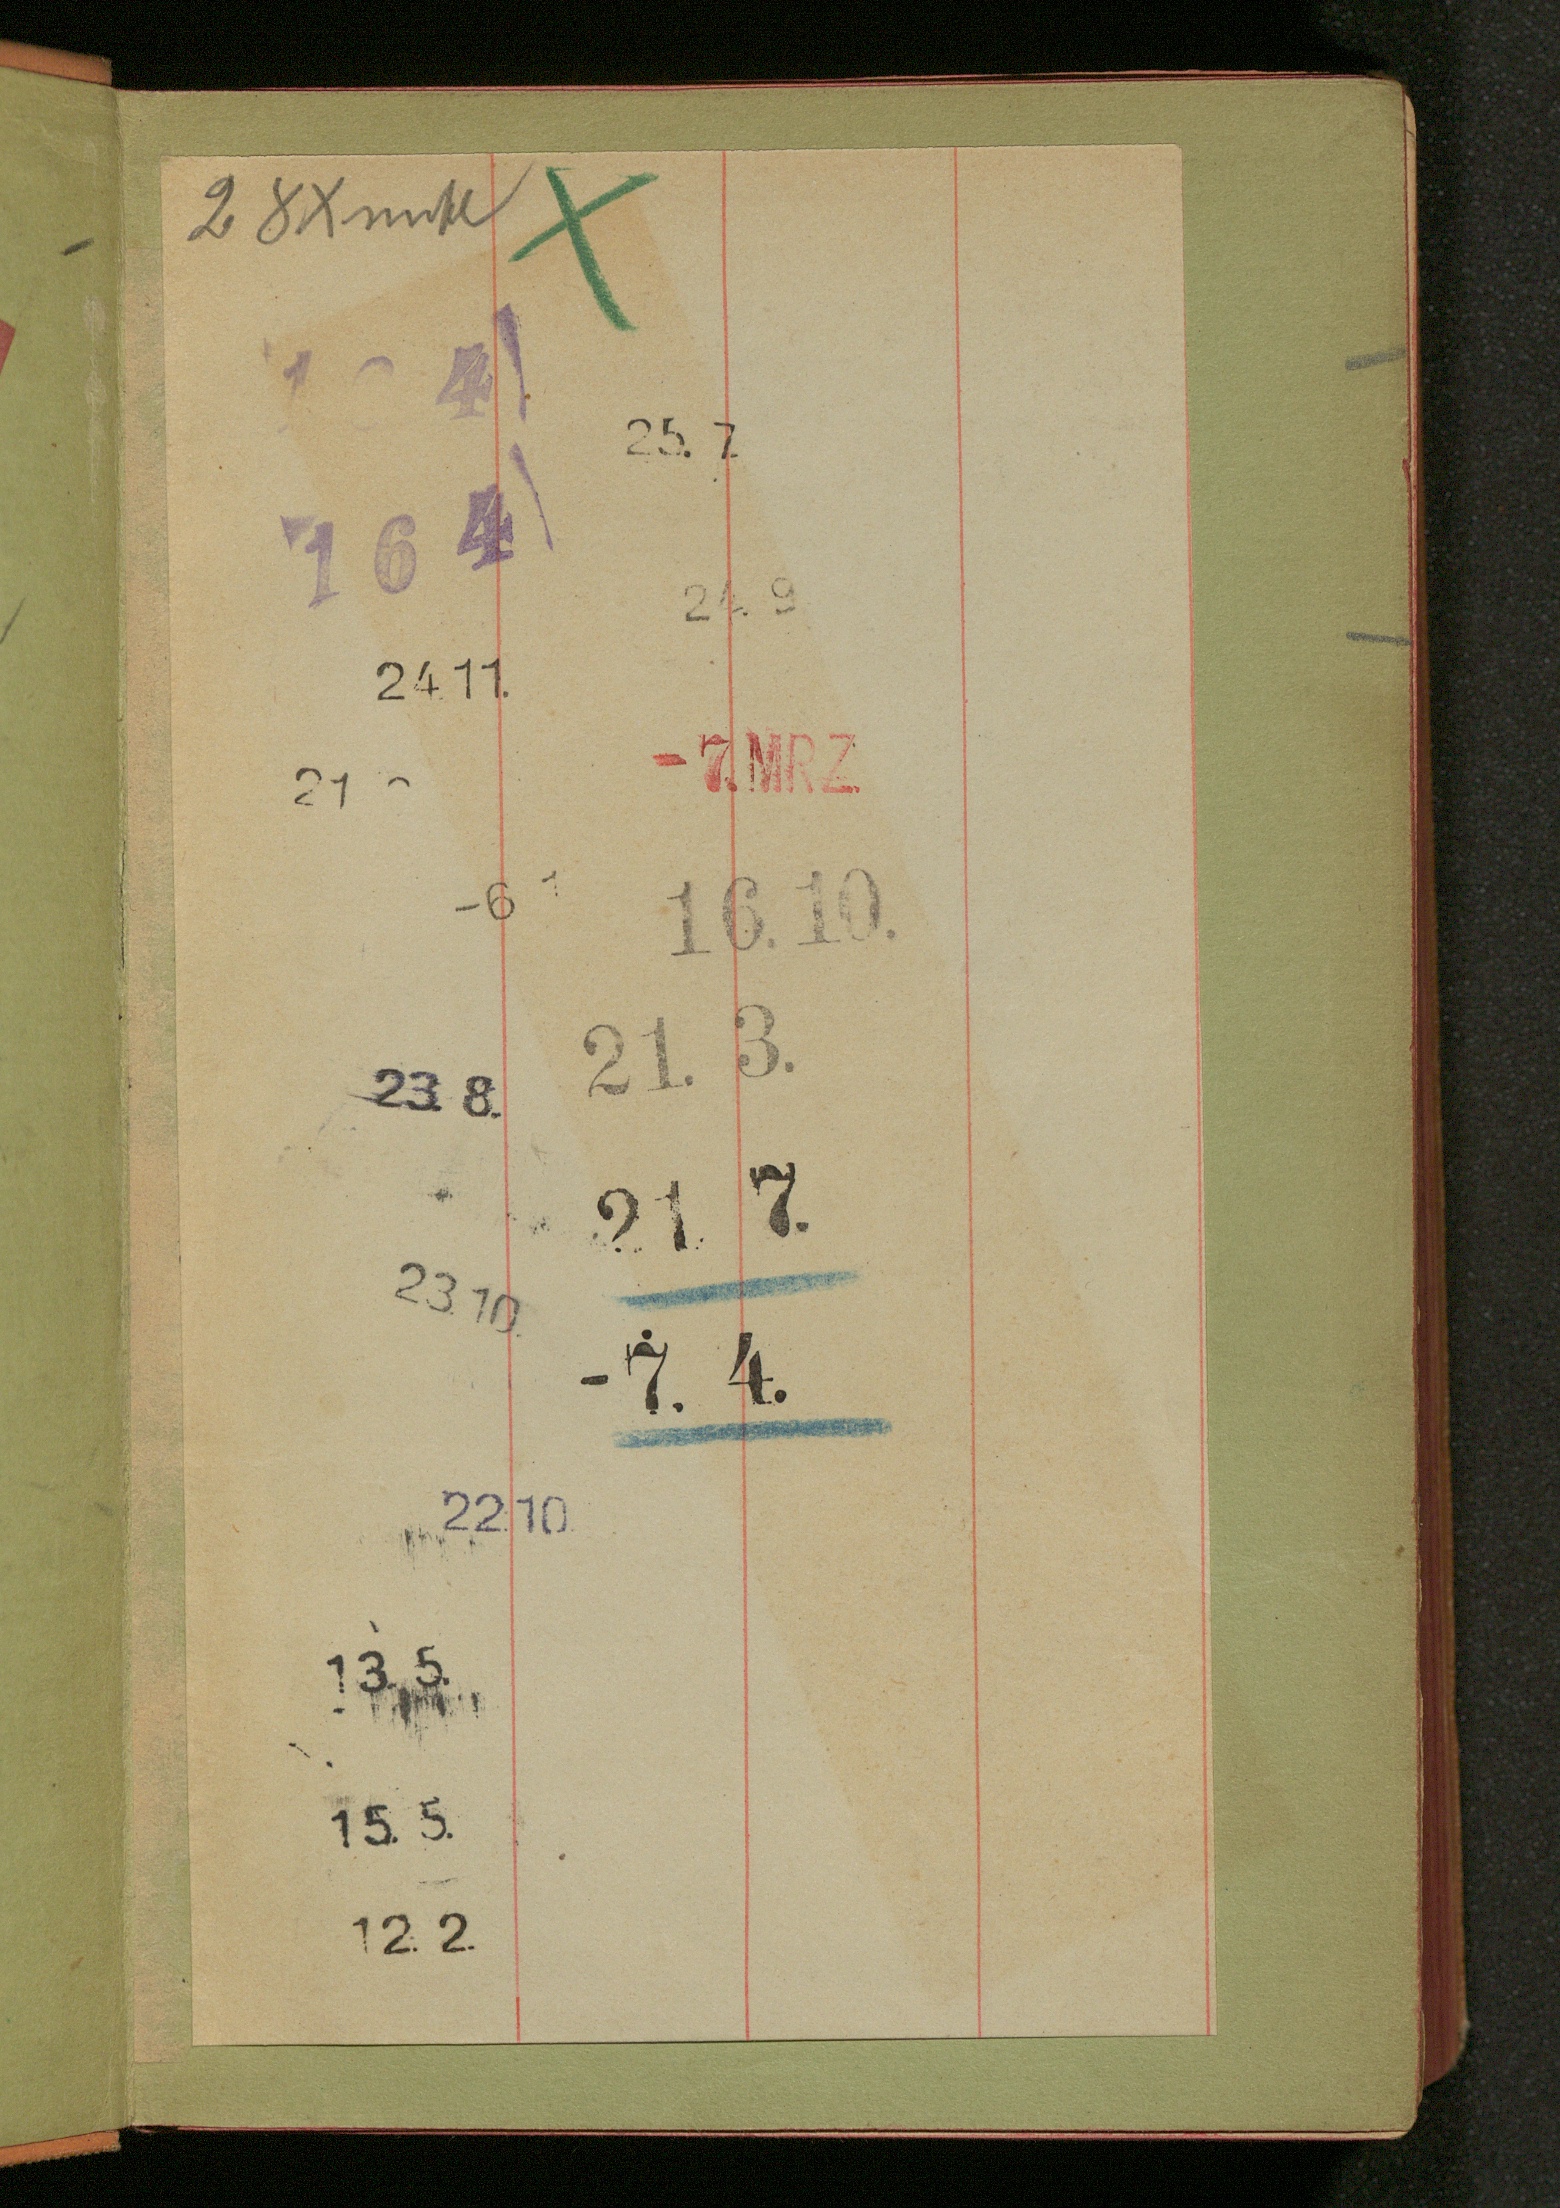 25. 7
164
24. 9
24.11.
-7. MRZ.
21
-6 1
16. 10.
21. 3.
23. 8.
21. 7.
23.10.
-7. 4.
22.10
13. 5.
15. 5.
12. 2.